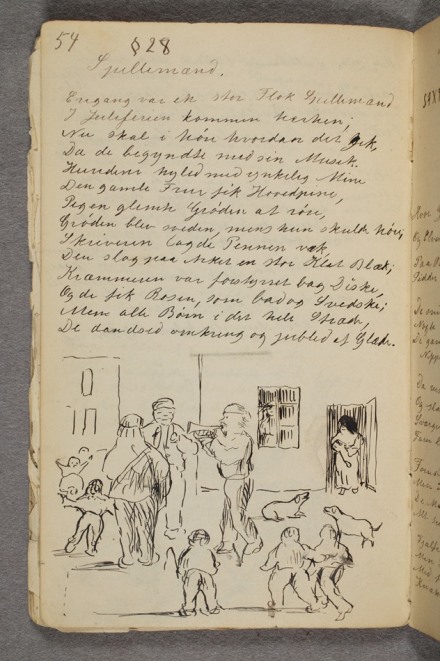 54 § 28
Spillemænd.
Engang var en stor Flok Spillemænd
I Juleferien kommen herhen;
Nu skal i høre hvordan det gik,
Da de begyndte med sin Musik.
Hundene hyled med ynkelig Mine
Den gamle Frue fik Hovedpine,
Pigen glemte Grøden at røre,
Grøden blev sveden, mens hun skulde høre,
Skriveren lagde Pennen væk,
Den slog paa Arket en stor Klat Blæk;
Kræmmeren var forstyrret bag Diske,
Og de fik Rosen, som bad og Svedske;
Mens alle Børn i det hele Stræde,
De dandsed omkring og jubled af Glæde.